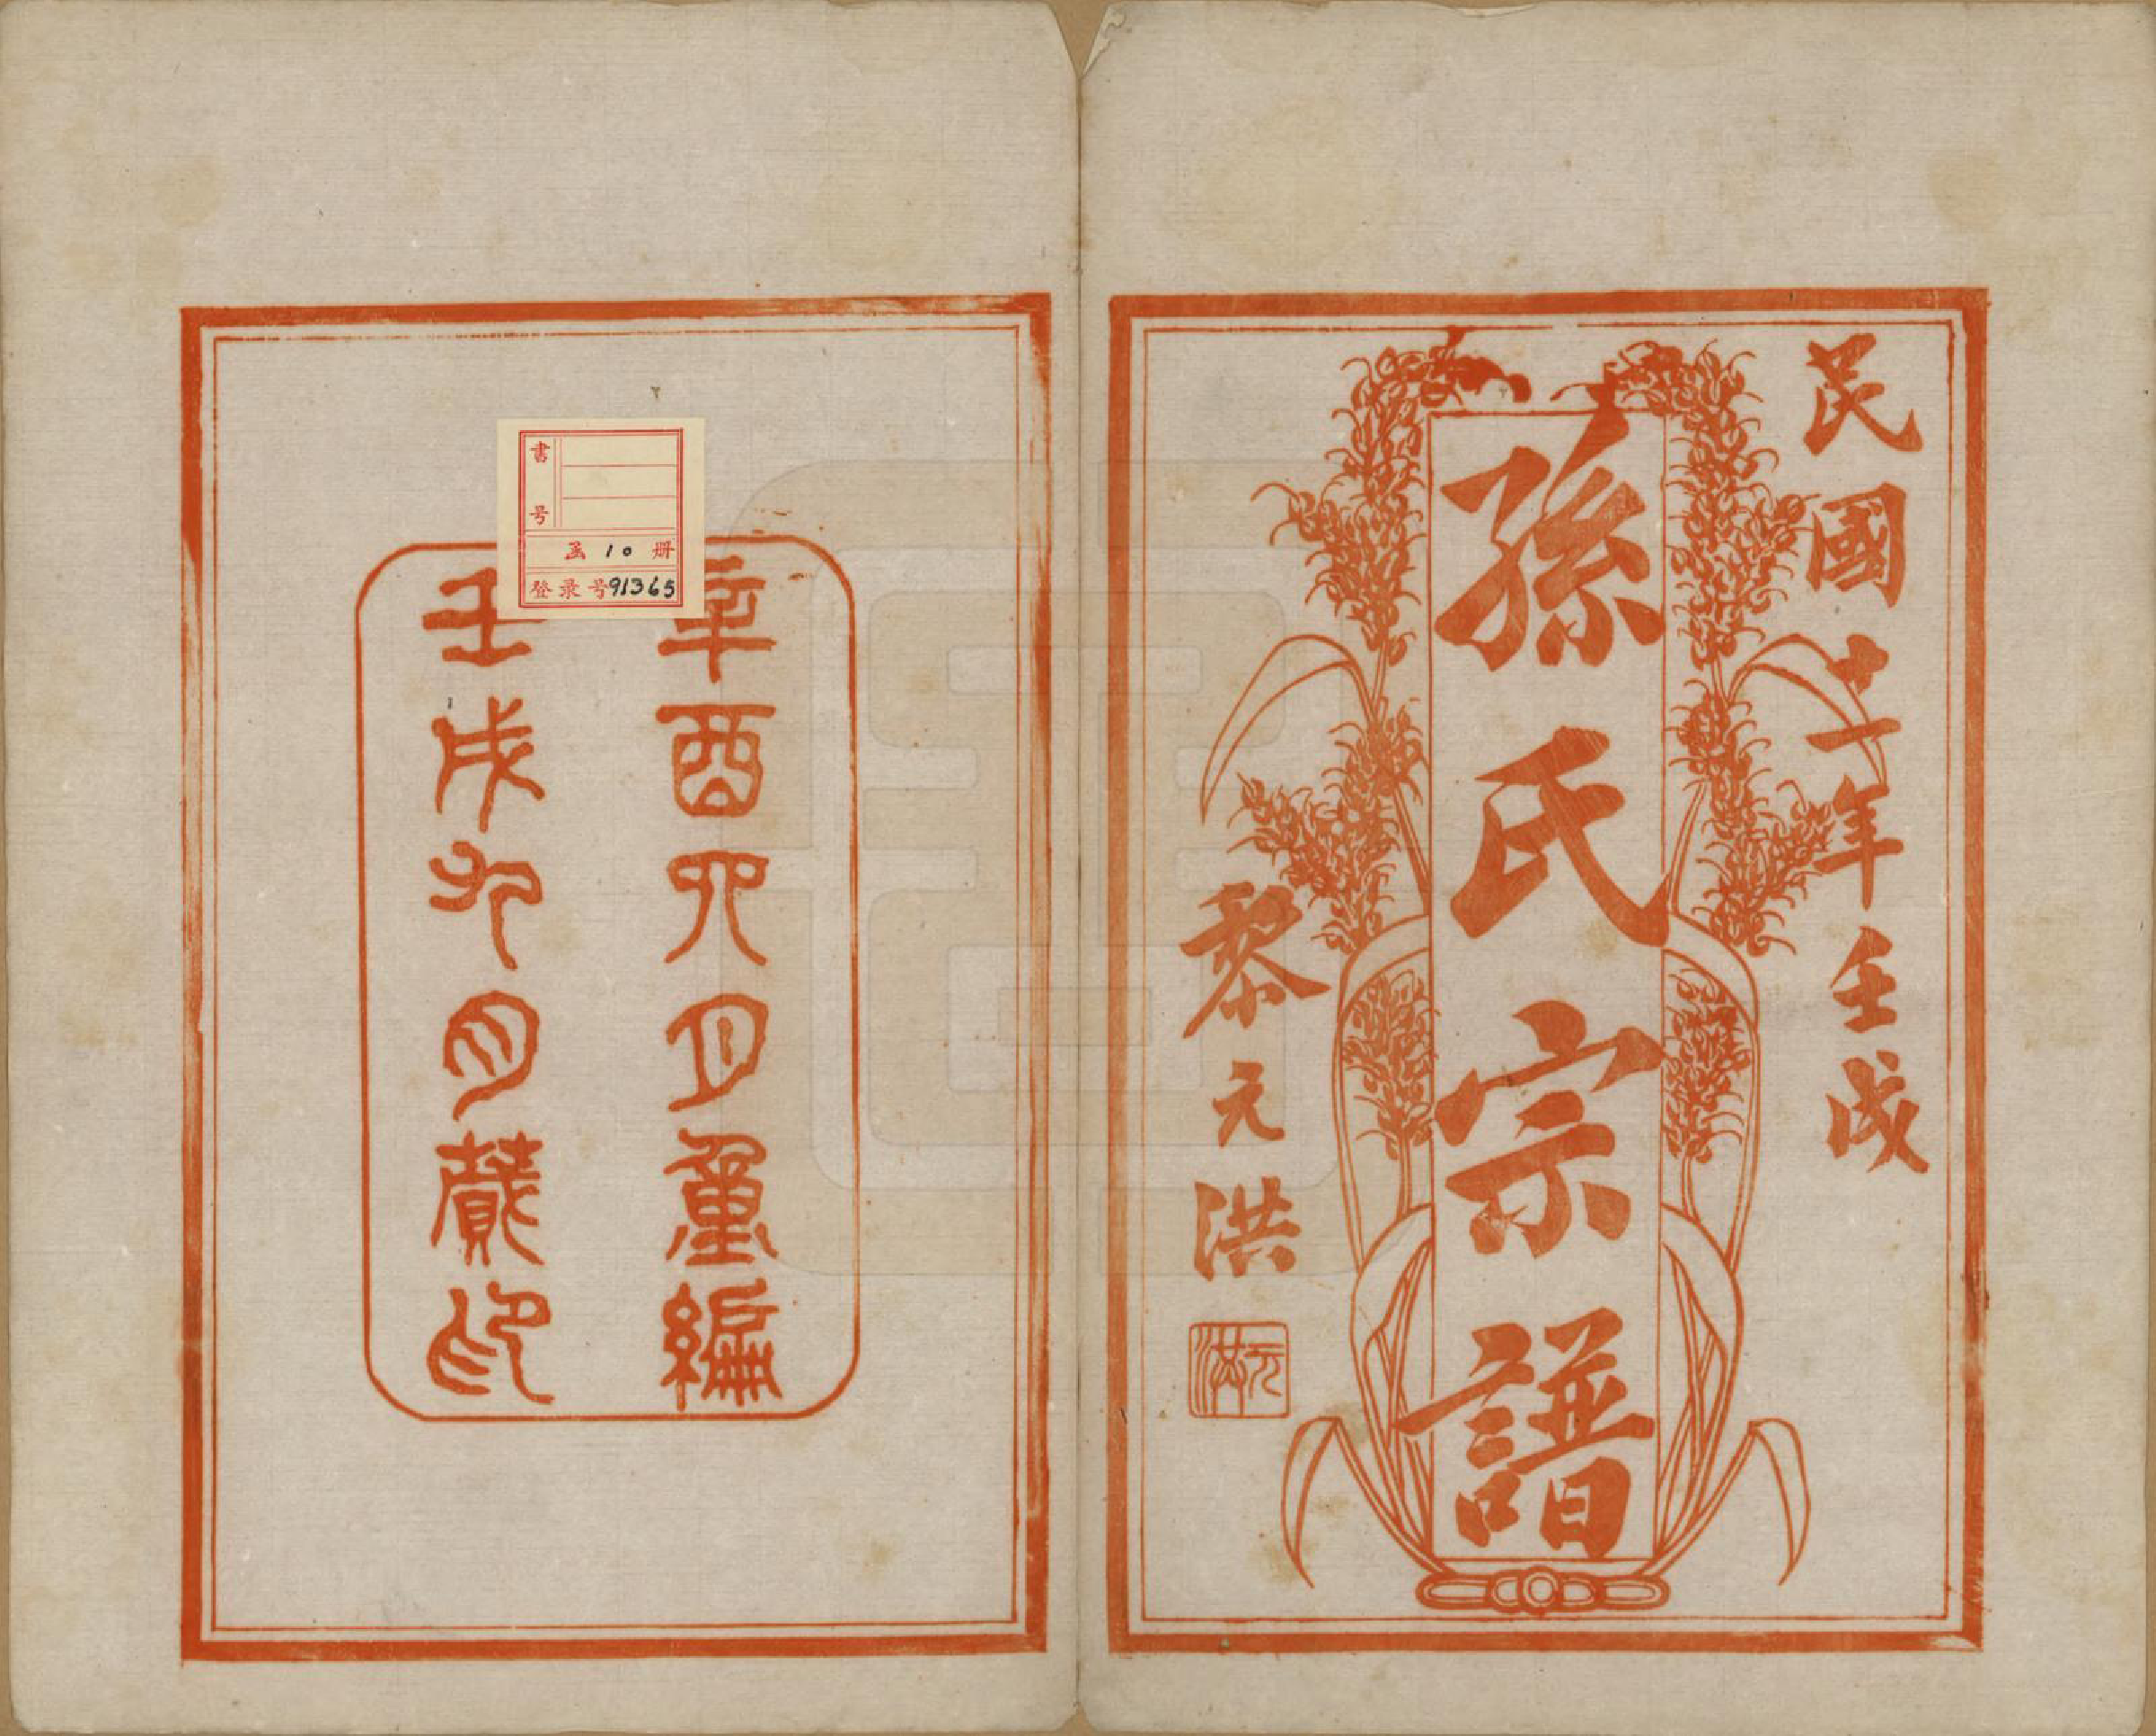 民國十一年壬戌
孫氏宗譜
黎元洪
元洪
辛酉六月重編
壬戌九月蕆印
書号
函 10 册
登录号91365